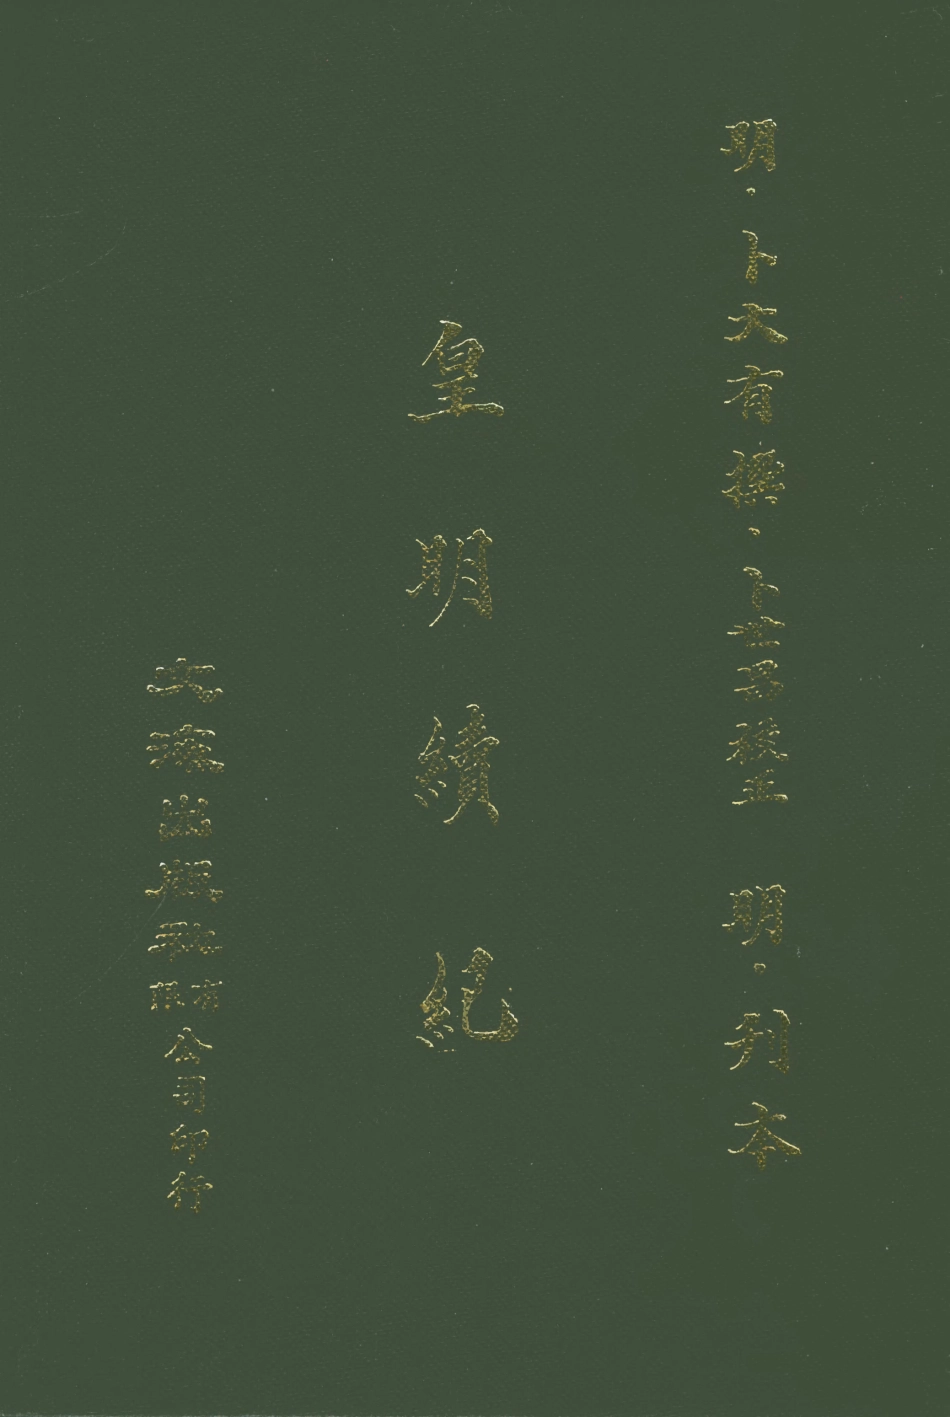 明·卜大有撰·卜世昌校並 明·刊本
皇明續紀
文海出版社有限公司印行